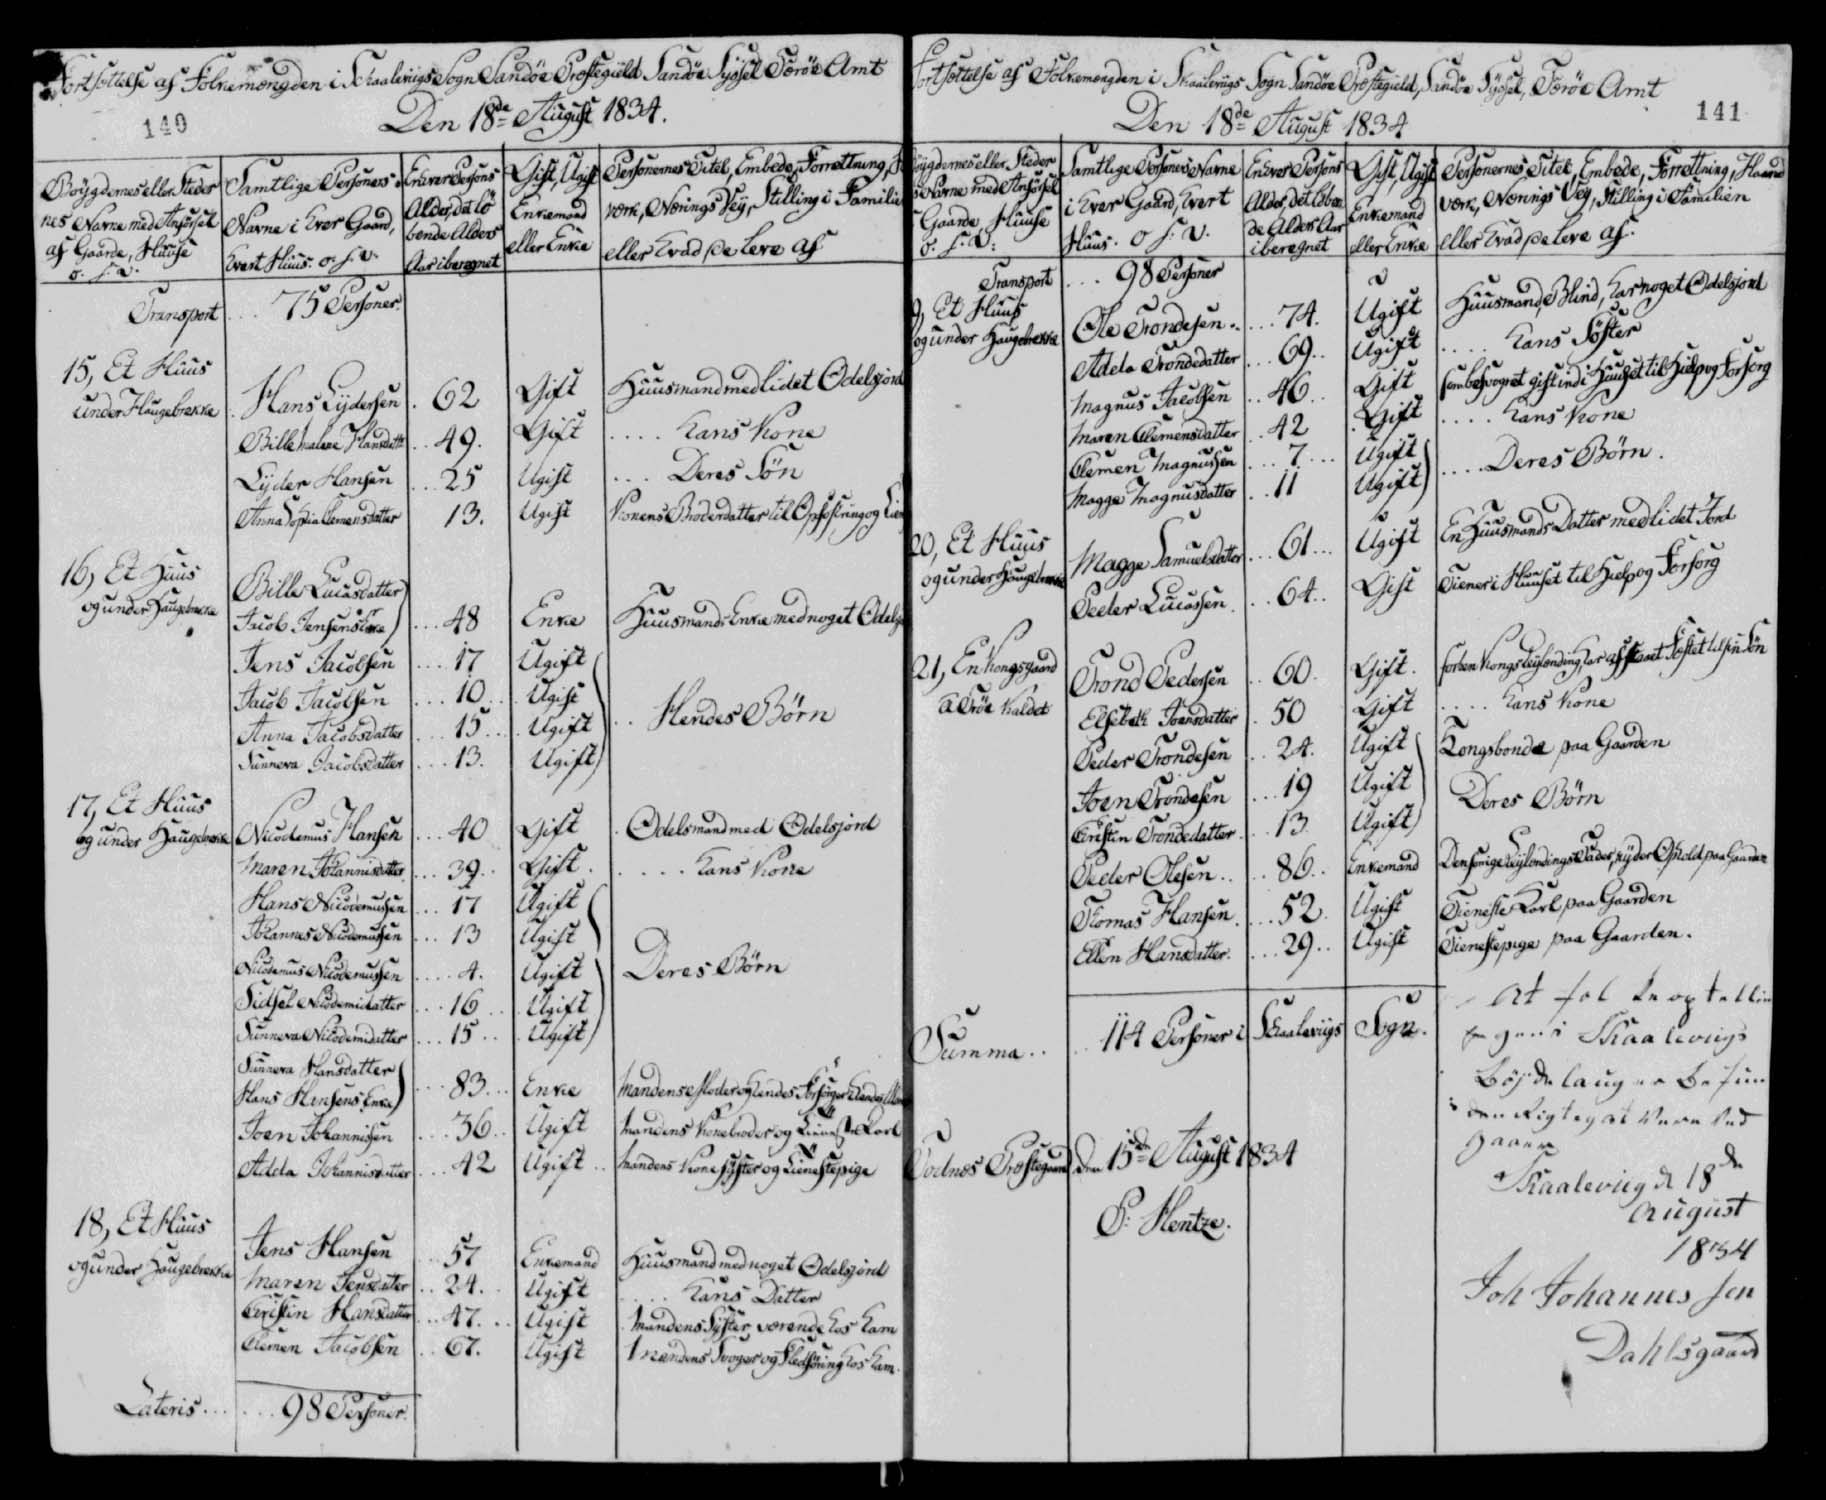 Fortsættelse af Folkemængden i Skaaleviigs Sogn Sandöe Præstegield Sandöe Sÿssel Færöe Amt
140
Den 18de August 1834.
Bÿigdernes eller Steder
nes Navne med Anförsel
af Gaarde, Huuse
o. s. v.
Samtlige Personers
Navne i hver Gaard,
hvert Huus. o. s. v.
Enhver Persons
Alder, det lö
bende Alders
Aar iberegnet
Gift, Ugift
Enkemand
eller Enke
Personernes Titel, Embede, Forretning,
værk, Nærings Vej, Stilling i Familie
eller hvad de leve af
Transport ... 75 Personer.
15, Et Huus
under Haugebrekke
Hans Lÿdersen . 62 Gift Huusmand med lidet Odelsjord
Bille malene Hansdatter .. 49. Gift .... hans Kone
Lÿder Hansen ... 25 Ugift ... Deres Sön
Anna Sophia Clemensdatter 13. Ugift Konens Broderdatter til Opfostring og
16, Et Huus
og under Haugebrekke
Bille Lucasdatter
Jacob Jensens Enke ... 48 Enke Huusmands Enke med noget
Jens Jacobsen .... 17 Ugift
Jacob Jacobsen .... 10 .. Ugift
Anna Jacobsdatter .... 15 ... Ugift .. Hendes Börn
Sunneva Jacobsdatter .... 13. Ugift
17, Et Huus
og under Haugebrekke
Nicodemus Hansen ... 40 Gift . Odelsmand med Odelsjord
Maren Johannisdatter ... 39.. Gift . ..... hans Kone
Hans Nicodemussen ... 17 Ugift
Johannes Nicodemussen ... 13 Ugift
Nicodemus Nicodemussen .... 4. Ugift Deres Börn
Sidsel Nicodemidatter ... 16 ... Ugift
Sunneva Nicodemidatter ... 15 ... Ugift
Sunneva Hansdatter
Hans Hansens Enke ... 83 ... Enke Mandens Moder og hendes
Joen Johannissen ... 36.. Ugift Mandens Konebroder og Tieneste Karl
Adela Johannisdatter ... 42 Ugift .. Mandens Kone syster og Tienestepige
18, Et Huus
og under Haugebrekke
Jens Hansen ... 57 Enkemand Huusmand med noget Odelsjord
Maren Jensdatter .. 24.. Ugift .... hans Datter
Christin Hansdatter ... 47. .. Ugift . Mandens Syster værende hos ham
Clemen Jacobsen .. 67. Ugift Mandens Svoger og Fledföring hos ham.
Lateris ... ... 98 Personer.
Fortsættelse af Folkemængden i Skaaleviigs Sogn Sandöe Præstegield, Sandöe Sÿssel, Færöe Amt
141
Den 18de August 1834
Bÿigdernes eller Steder
s Navne med Anförsel
Gaarde Huuse
o. s. v.
Samtlige Personers Navne
i hver Gaard, hvert
Huus. o. s. v.
Enhver Persons
Alder, det löben
de Alders Aar
iberegnet
Gift, Ugift
Enkemand
eller Enke
Personernes Titel, Embede, Forretning, Haand
værk, Nærings Vej, Stilling i Familien
eller hvad de leve af.
Transport ... 98 Personer
9, Et Huus
og under Haugebrekke
Ole Trondesen .. ... 74. Ugift Huusmand, Blind, har noget Odelsjord
Adela Trondedatter .. 69.. Ugift .... hans Söster
Magnus Jacobsen .. 46.. Gift gift ind i Huuset til Hielp og Forsorg
Maren Clemensdatter .. 42 Gift .... hans Kone
Clemen Magnussen ... 7 ... Ugift
Magge Magnusdatter .. 11 Ugift .... Deres Börn.
20, Et Huus
og under Haugebrekke
Magge Samuelsdatter .. 61 ... Ugift En Huusmands Datter med lidet Jord
Peder Lucassen. .. 64.. Gift Tiener i Huuset til Hielp og Forsorg
21, En Kongsgaard
a Tröe kaldet
Trond Pedersen .. 60. Gift. forhen Kongsleÿlænding, har afstaaet Fæstet til sin Sön
Elsebeth Joensdatter . 50 Gift .... hans Kone
Peder Trondesen .. 24. Ugift Kongsbonde paa Gaarden
Joen Trondesen ... 19 Ugift
Christin Trondedatter . .. 13. Ugift Deres Börn
Peder Olesen .. .. 86.. Enkemand Den forrige Leÿlændings Fader, nÿder Ophold paa Gaarden
Thomas Hansen. ... 52. Ugift Tieneste Karl paa Gaarden
Ellen Hansdatter. ... 29.. Ugift Tienestepige paa Gaarden.
Summa .. .. 114 Personer i Skaaleviigs Sogn.
Todnes Præstegaard den 15de August 1834
P: Hentze.
At folke optellin
gen i Skaalevigs
Böjde laug er befun
den Rigteg at være
Skaalevig d 18de
August
1834
Joh Johannessen
Dahlsgaard